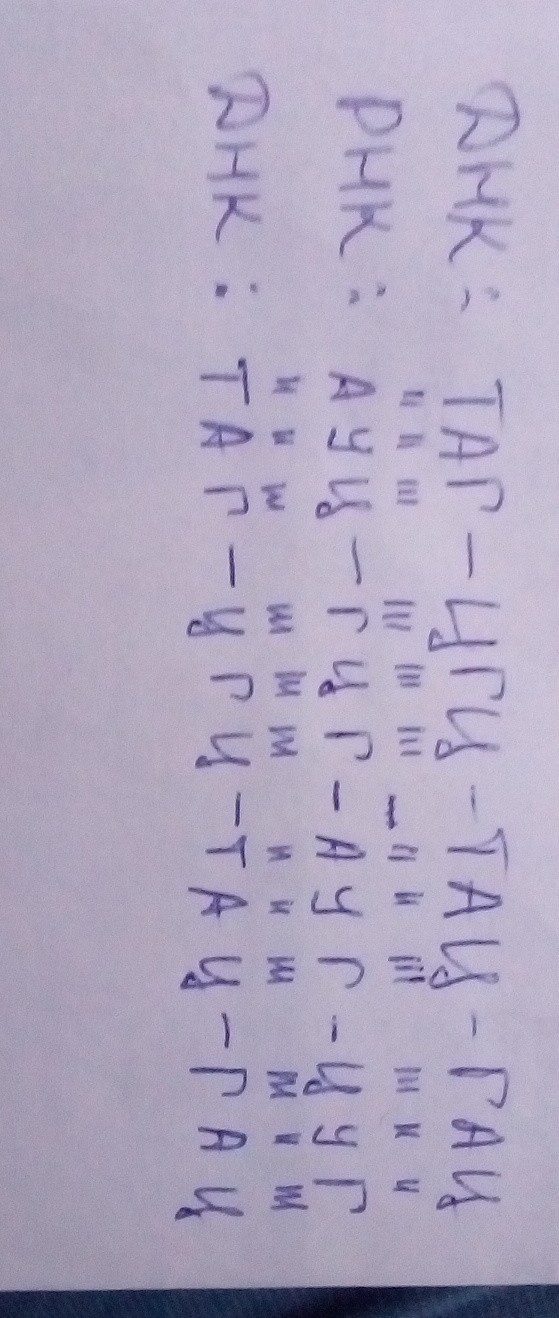 ДНК: ТАГ-ЦГЦ-ТАЦ-ГАЦ
РНК: АУЦ-ГЦГ-АУГ-ЦУГ
ДНК: ТАГ-ЦГЦ-ТАЦ-ГАЦ